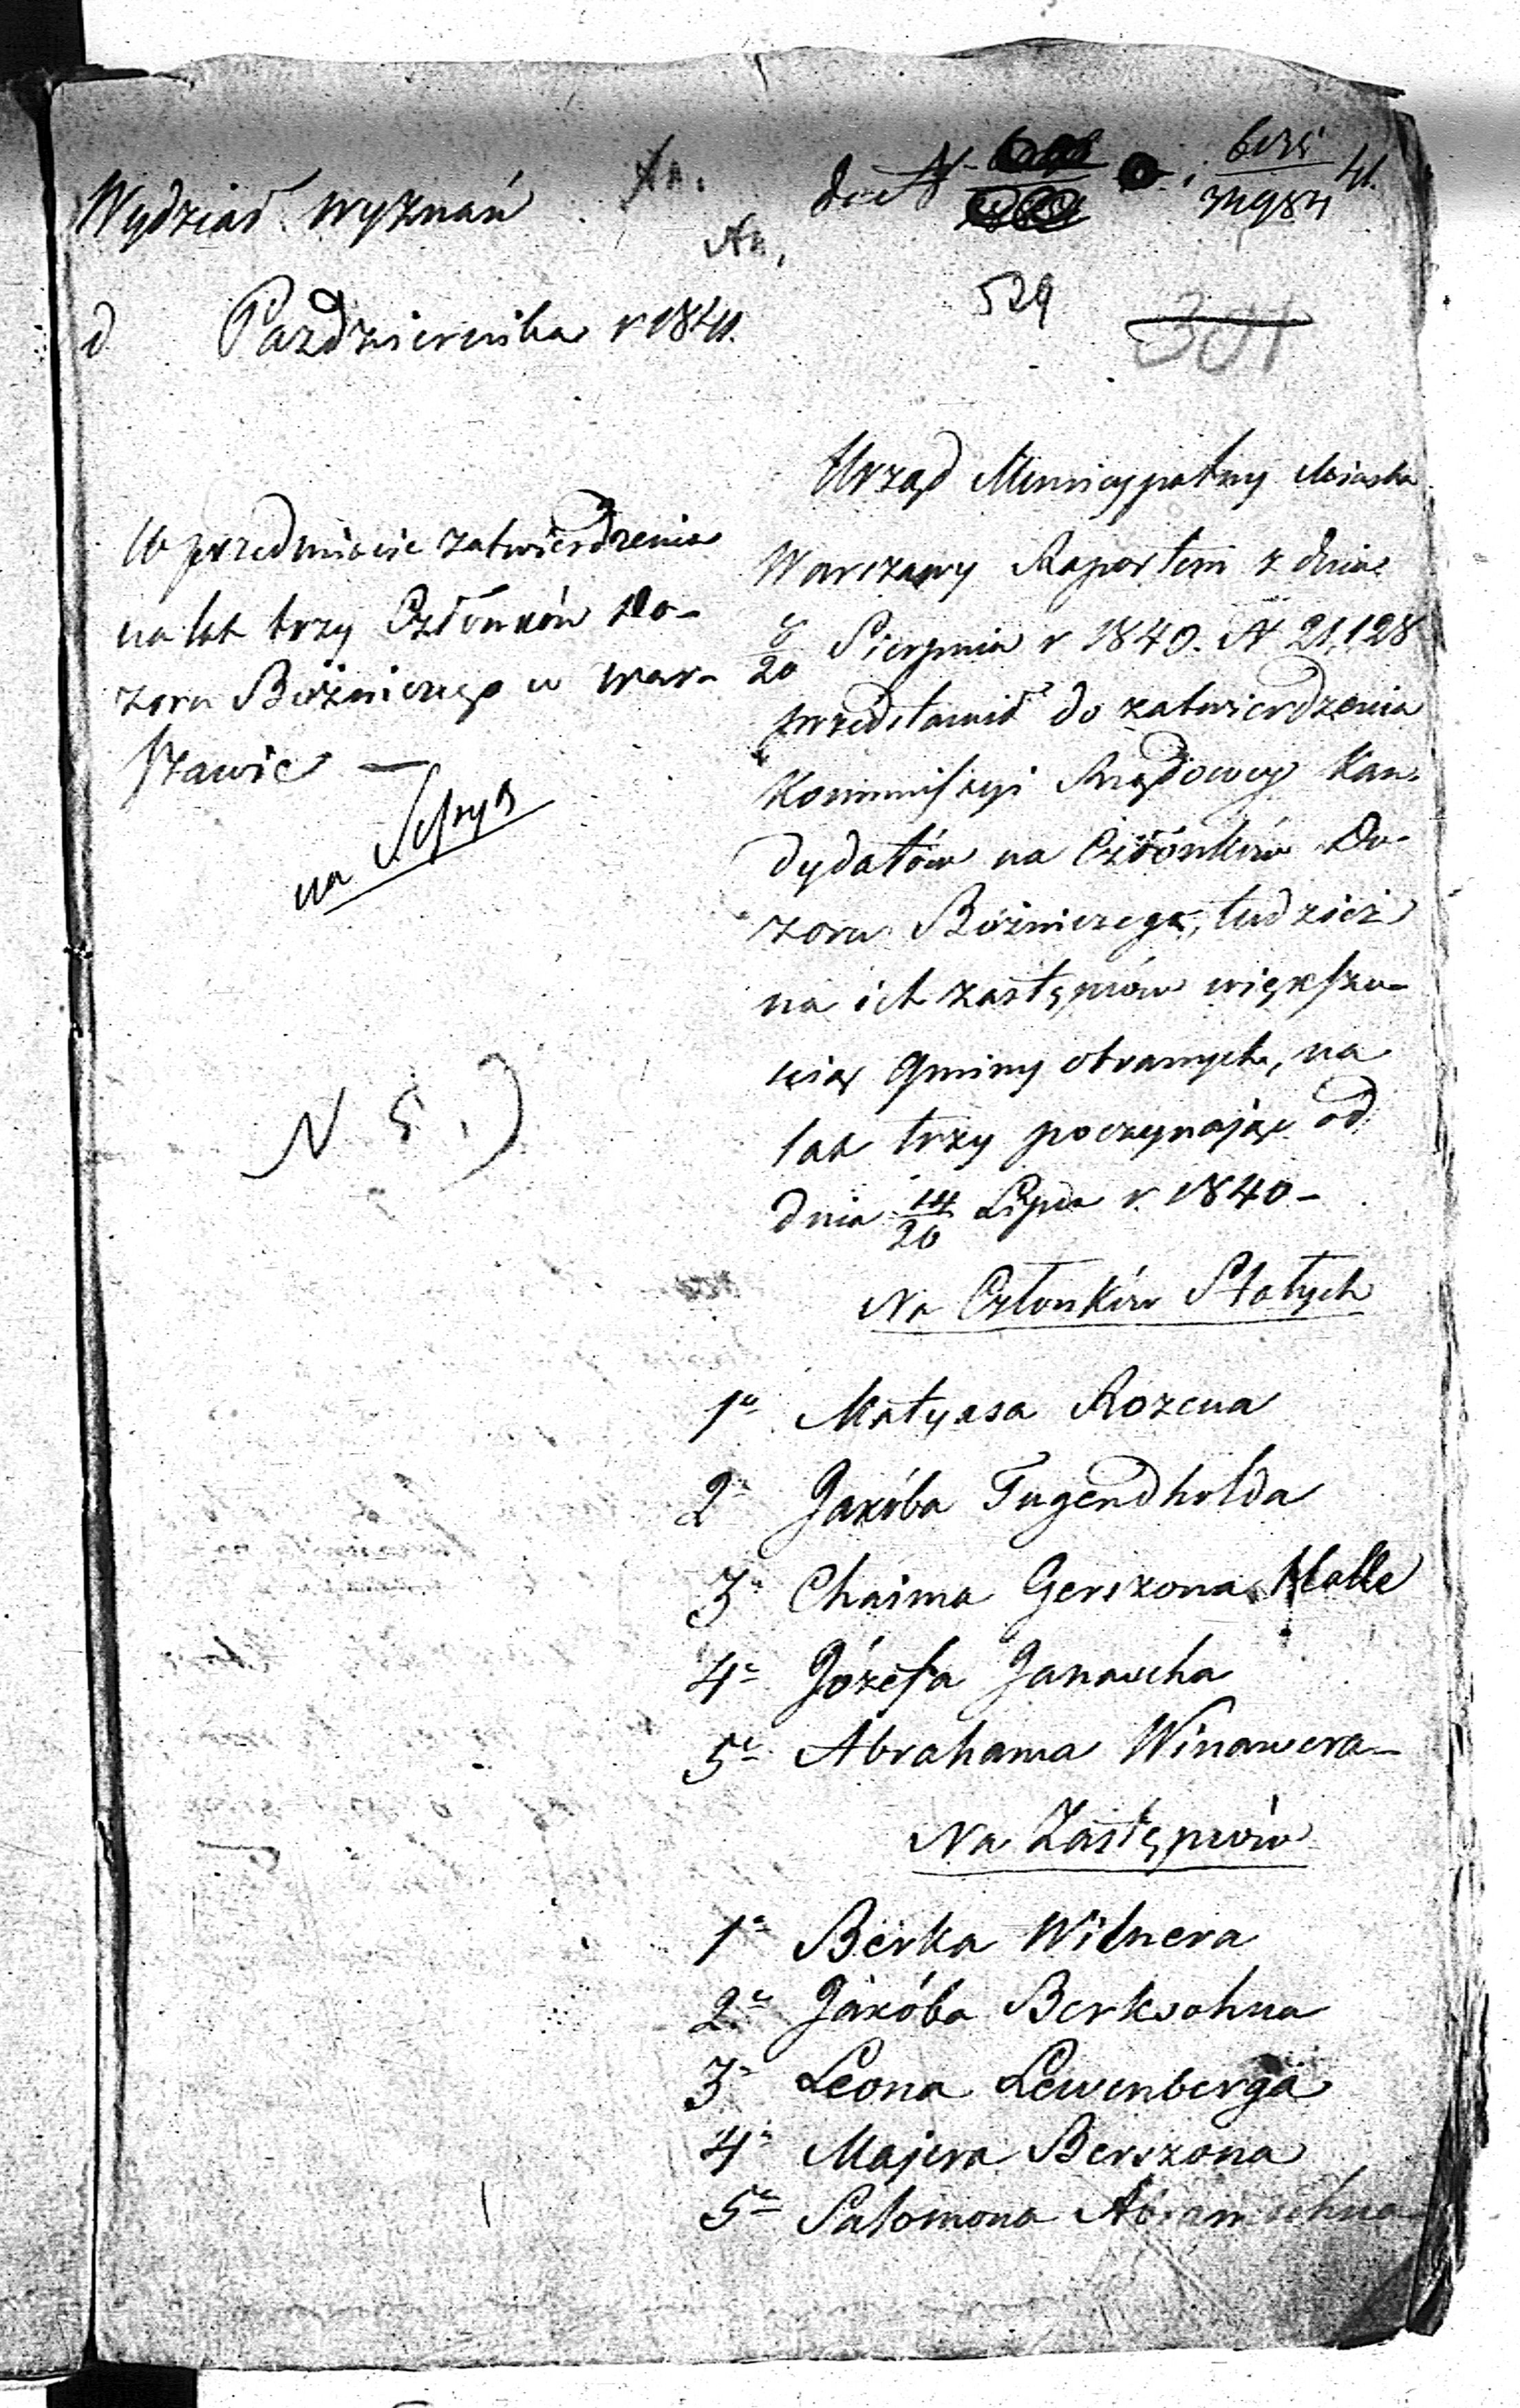 Wydział Wyznań
An.
An.
do N
6135 41.
529
301
d Pazdziernika r 1841.
W przedmiocie zatwierdzenia
na lat trzy Członków Do-
zoru Bóżniczego w War-
szawie —
na
N 5.)
Urząd Municypalny Miasta
Warszawy Raportem z dnia
8/20 Sierpnia r 1840. N 21,128
przedstawił do zatwierdzenia
Kommissyi Rządowey Kan-
dydatów na Członków Do-
zoru Bóżniczego, tudzież
na ich zastępców większo-
ścią Gminy obranych, na
lat trzy poczynając od
dnia 14/20 Lipca r. 1840 -
Na Członków Stałych
1o Matyasa Rozena
2o Jakóba Tugendholda
3o Chaima Gerszona Halle
4o Józefa Janascha
5o Abrahama Winawera -
Na Zastępców
1o Berka Wilnera
2o Jakóba Berksohna
3o Leona Lewenberga
4o Majera Berszona
5o Salomona Abramsohna